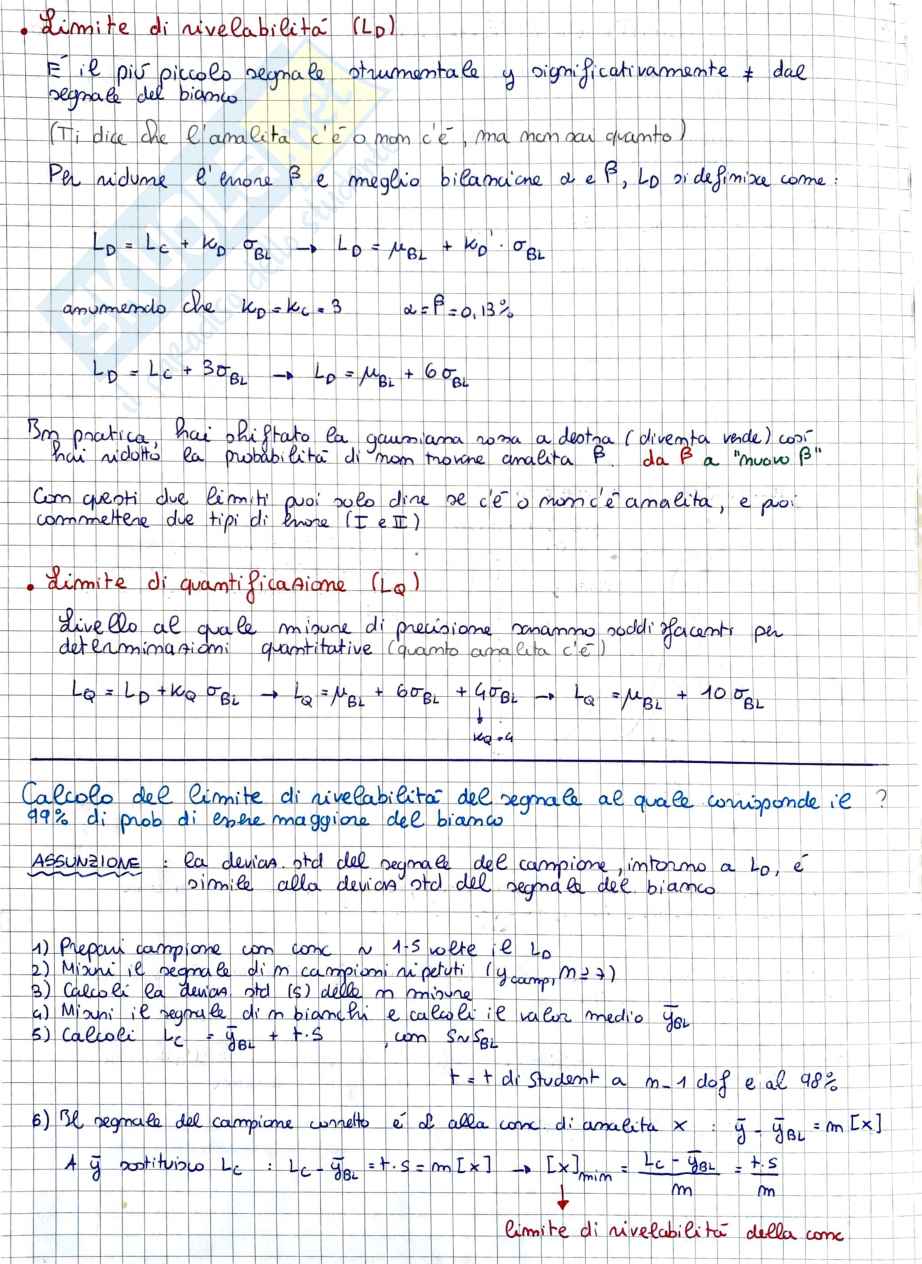 • Limite di rivelabilitá (L_D)
É il piú piccolo segnale strumentale y significativamente ≠ dal
segnale del bianco
(Ti dice che l'analita c'é o non c'é, ma non sai quanto)
Per ridurre l'errore β e meglio bilanciare α e β, L_D si definisce come:
L_D = L_C + K_D · σ_BL → L_D = μ_BL + K_D' · σ_BL
assumendo che K_D = K_C = 3 α = β = 0,13%
L_D = L_C + 3σ_BL → L_D = μ_BL + 6σ_BL
In pratica, hai shiftato la gaussiana rossa a destra (diventa verde) così
hai ridotto la probabilitá di non trovare analita β. da β a "nuovo β"
Con questi due limiti puoi solo dire se c'é o non c'é analita, e puoi
commettere due tipi di errore (I e II)
• Limite di quantificazione (L_Q)
Livello al quale misure di precisione saranno soddisfacenti per
determinazioni quantitative (quanto analita c'é)
L_Q = L_D + K_Q σ_BL → L_Q = μ_BL + 6σ_BL + 4σ_BL → L_Q = μ_BL + 10σ_BL
↓
K_Q = 4
Calcolo del limite di rivelabilitá del segnale al quale corrisponde il ?
99% di prob di essere maggiore del bianco
ASSUNZIONE : la devias. std del segnale del campione, intorno a L_D, é
simile alla devias std del segnale del bianco
1) Prepari campione con conc ~ 1-5 volte il L_D
2) Misuri il segnale di n campioni ripetuti (y_camp, n ≥ 7)
3) Calcoli la devias. std (s) delle n misure
4) Misuri il segnale di n bianchi e calcoli il valor medio ȳ_BL
5) Calcoli L_C = ȳ_BL + t·s , con s ~ s_BL
t = t di Student a n-1 dof e al 98%
6) Il segnale del campione corretto é α alla conc. di analita x : ȳ - ȳ_BL = m[x]
A ȳ sostituisco L_C : L_C - ȳ_BL = t·s = m[x] → [x]_min = (L_C - ȳ_BL)/m = t·s/m
↓
limite di rivelabilitá della conc